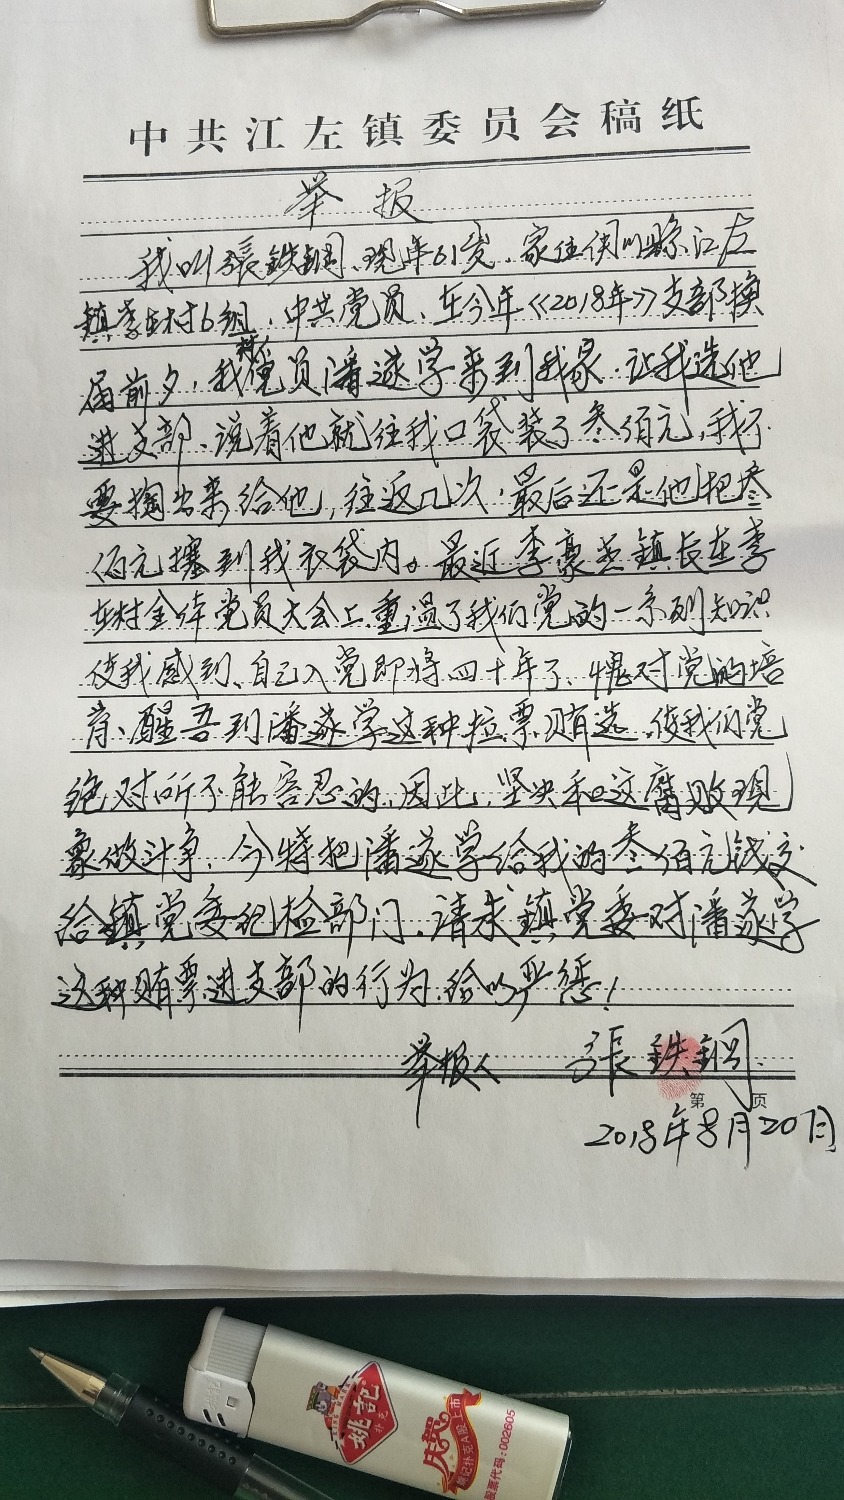 中共江左镇委员会稿纸
举报
我叫張鉄鋼、现年61岁、家住伊川縣江左
鎮李村6组、中共党员、在今年《2018年》支部换
届前夕,我村党员潘遂学来到我家、让我选他
进支部、说着他就往我口袋装了叁佰元,我不
要掏出来给他,往返几次,最后还是他把叁
佰元攥到我衣袋内。最近李豪杰鎮长在李
村全体党员大会上重温了我们党的一系列知识
使我感到、自己入党即将四十年了、愧对党的培
育、醒吾到潘遂学这种拉票贿选、使我们党
绝对所不能容忍的、因此、坚决和这腐败现
象做斗争、今特把潘遂学给我的叁佰元钱交
给鎮党委纪检部门、请求鎮党委对潘遂学
这种贿票进支部的行为、给以严惩!
举报人 張鉄鋼
第 页
2018年8月20日
姚记
扑克
庆贺
姚记扑克A股上市
股票代码:002605